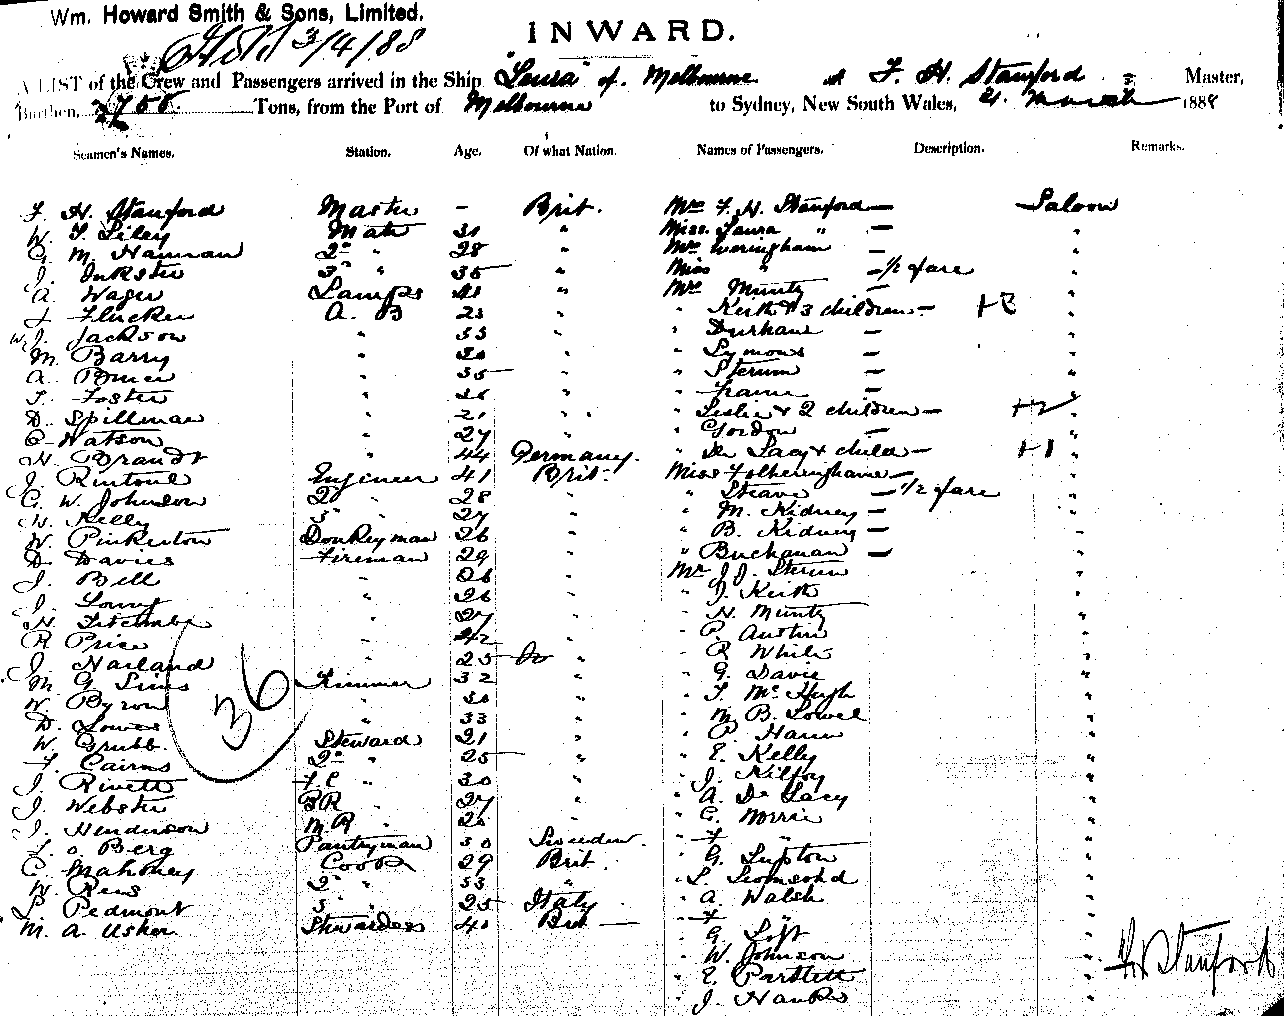 Wm. Howard Smith & Sons, Limited.
3/4/88
INWARD.
A LIST of the Crew and Passengers arrived in the Ship "Laura" of Melbourne F. H. Stanford Master,
Burthen, Tons, from the Port of Melbourne to Sydney, New South Wales, 21 March 1888
Seamen's Names. Station. Age. Of what Nation. Names of Passengers. Description. Remarks.
F. H. Stanford Master - Brit. Mrs F. H. Stanford — Saloon
W. T. Liley Mate 31 " Miss Laura " — "
C. M. Hannan 2nd " 28 " Mrs Weringham — "
J. Inkster 3rd " 35 " Miss " — 1/2 fare "
A. Wager Lamps 41 " Mrs Muntz — "
Flucker A. B 23 " " Keith & 3 children — +3 "
W. J. Jackson " 33 " " Durham — "
M. Barry " 30 " " Symons — "
A. Bruce " 35 " " Sterum — "
T. Foster " " " —
D. Spillman " 21 " " Leslie & 2 children — +2 "
C. Watson " 27 " " Gordon — "
H. Brandt " 44 Germany. " De Lacy & child — +1 "
J. Rintoul Engineer 41 Brit. Miss Fotheringhame — "
C. W. Johnson 2 " 28 " " — 1/2 fare "
W. Kelly 3 " 27 " " M. Kidney — "
W. Pinkerton Donkeyman 26 " " B. Kidney — "
D. Davies Fireman 29 " " Buchanan — "
J. Bell " 26 " Mr J. J. Sterum "
J. " 26 " " J. Keith "
H. Titcombe " 27 " " H. Muntz "
R Price " 42 " " P. Austin "
J. Harland " 25 " " R White "
M. G. Sims Trimmer 32 " " G. Davie "
W. Byron " 30 " " T. McHugh "
D. Lowes " 33 " " M. B. Lowel "
W. Grubb. Steward 21 " " P. Hann "
Cairns 2nd " 25 " " E. Kelly "
J. Rivett F C " 30 " " J. Kilfoy "
J. Webster BR " 27 " " A. De Lacy "
J. Henderson M R " " " C. Norrie "
L. O. Berg Pantryman 30 Sweden. " " "
C. Mahoney Cook 29 Brit. " G. Lupton "
W. Rees 2nd " 33 " " L. "
L. Pedmont 3 " 25 Italy " A. Walsh "
M. A. Usher Stewardess 40 Brit — " " "
" G. Loft "
" W. Johnson "
" E. Bartlett "
" J. Hanks "
36
F H Stanford